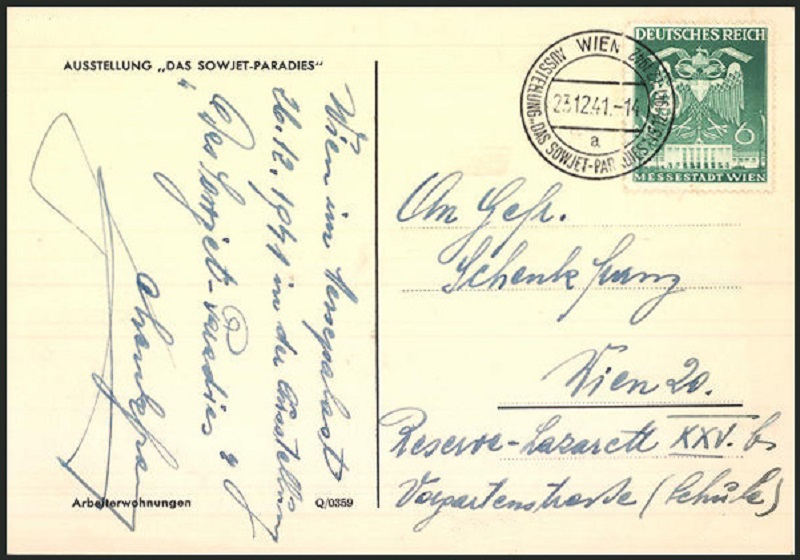 AUSSTELLUNG „DAS SOWJET-PARADIES“
Wien im Messepalast
26.12.1941 in der Ausstellung
„Das Sowjet-Paradies“
Arbeiterwohnungen
Q/0359
WIEN
AUSSTELLUNG „DAS SOWJET-PARADIES“
23.12.41.-14
a
DEUTSCHES REICH
6
MESSESTADT WIEN
An Gefr.
Schenk Franz
Wien 20.
Reserve-Lazarett XXV. b
Vorgartenstrasse (Schule)